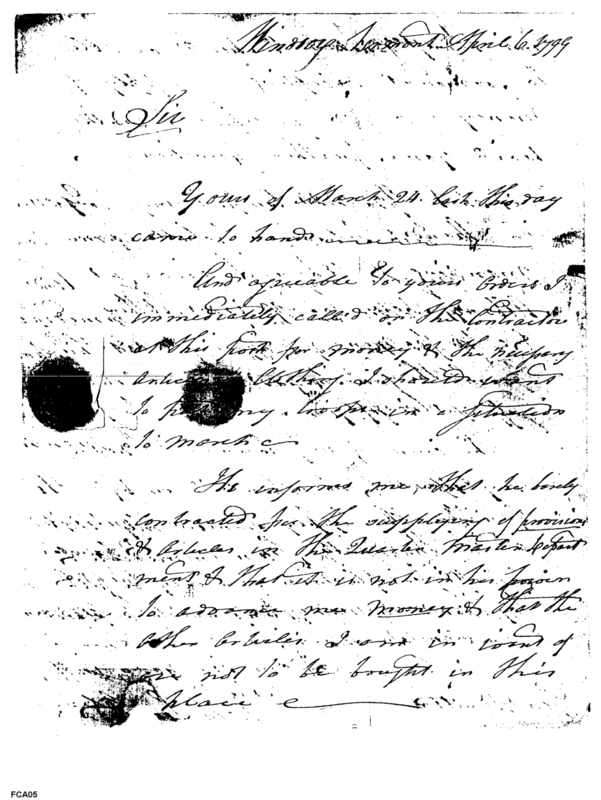 Windsor Vermont April 6. 1799
Sir
Yours of March 24 last this day
came to hand
And agreeable to your Orders I
immediately called on the Contractor
at this post for money & the necessary
Articles Clothing I should want
to put my troops in a situation
to march
He informs me that he barely
contracted for the supplying of provision
& Articles in the Quarter Master Depart
ment & that it is not in his power
to advance me money & that the
Other Articles I am in want of
are not to be bought in this
place
FCA05